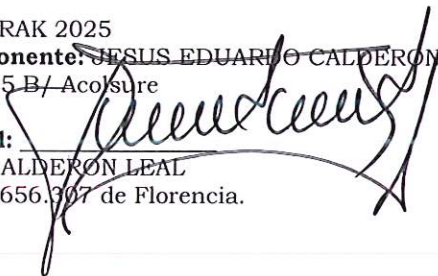 RAK 2025
onente: JESUS EDUARDO CALDERON
5 B/ Acolsure
l:
ALDERON LEAL
656.307 de Florencia.